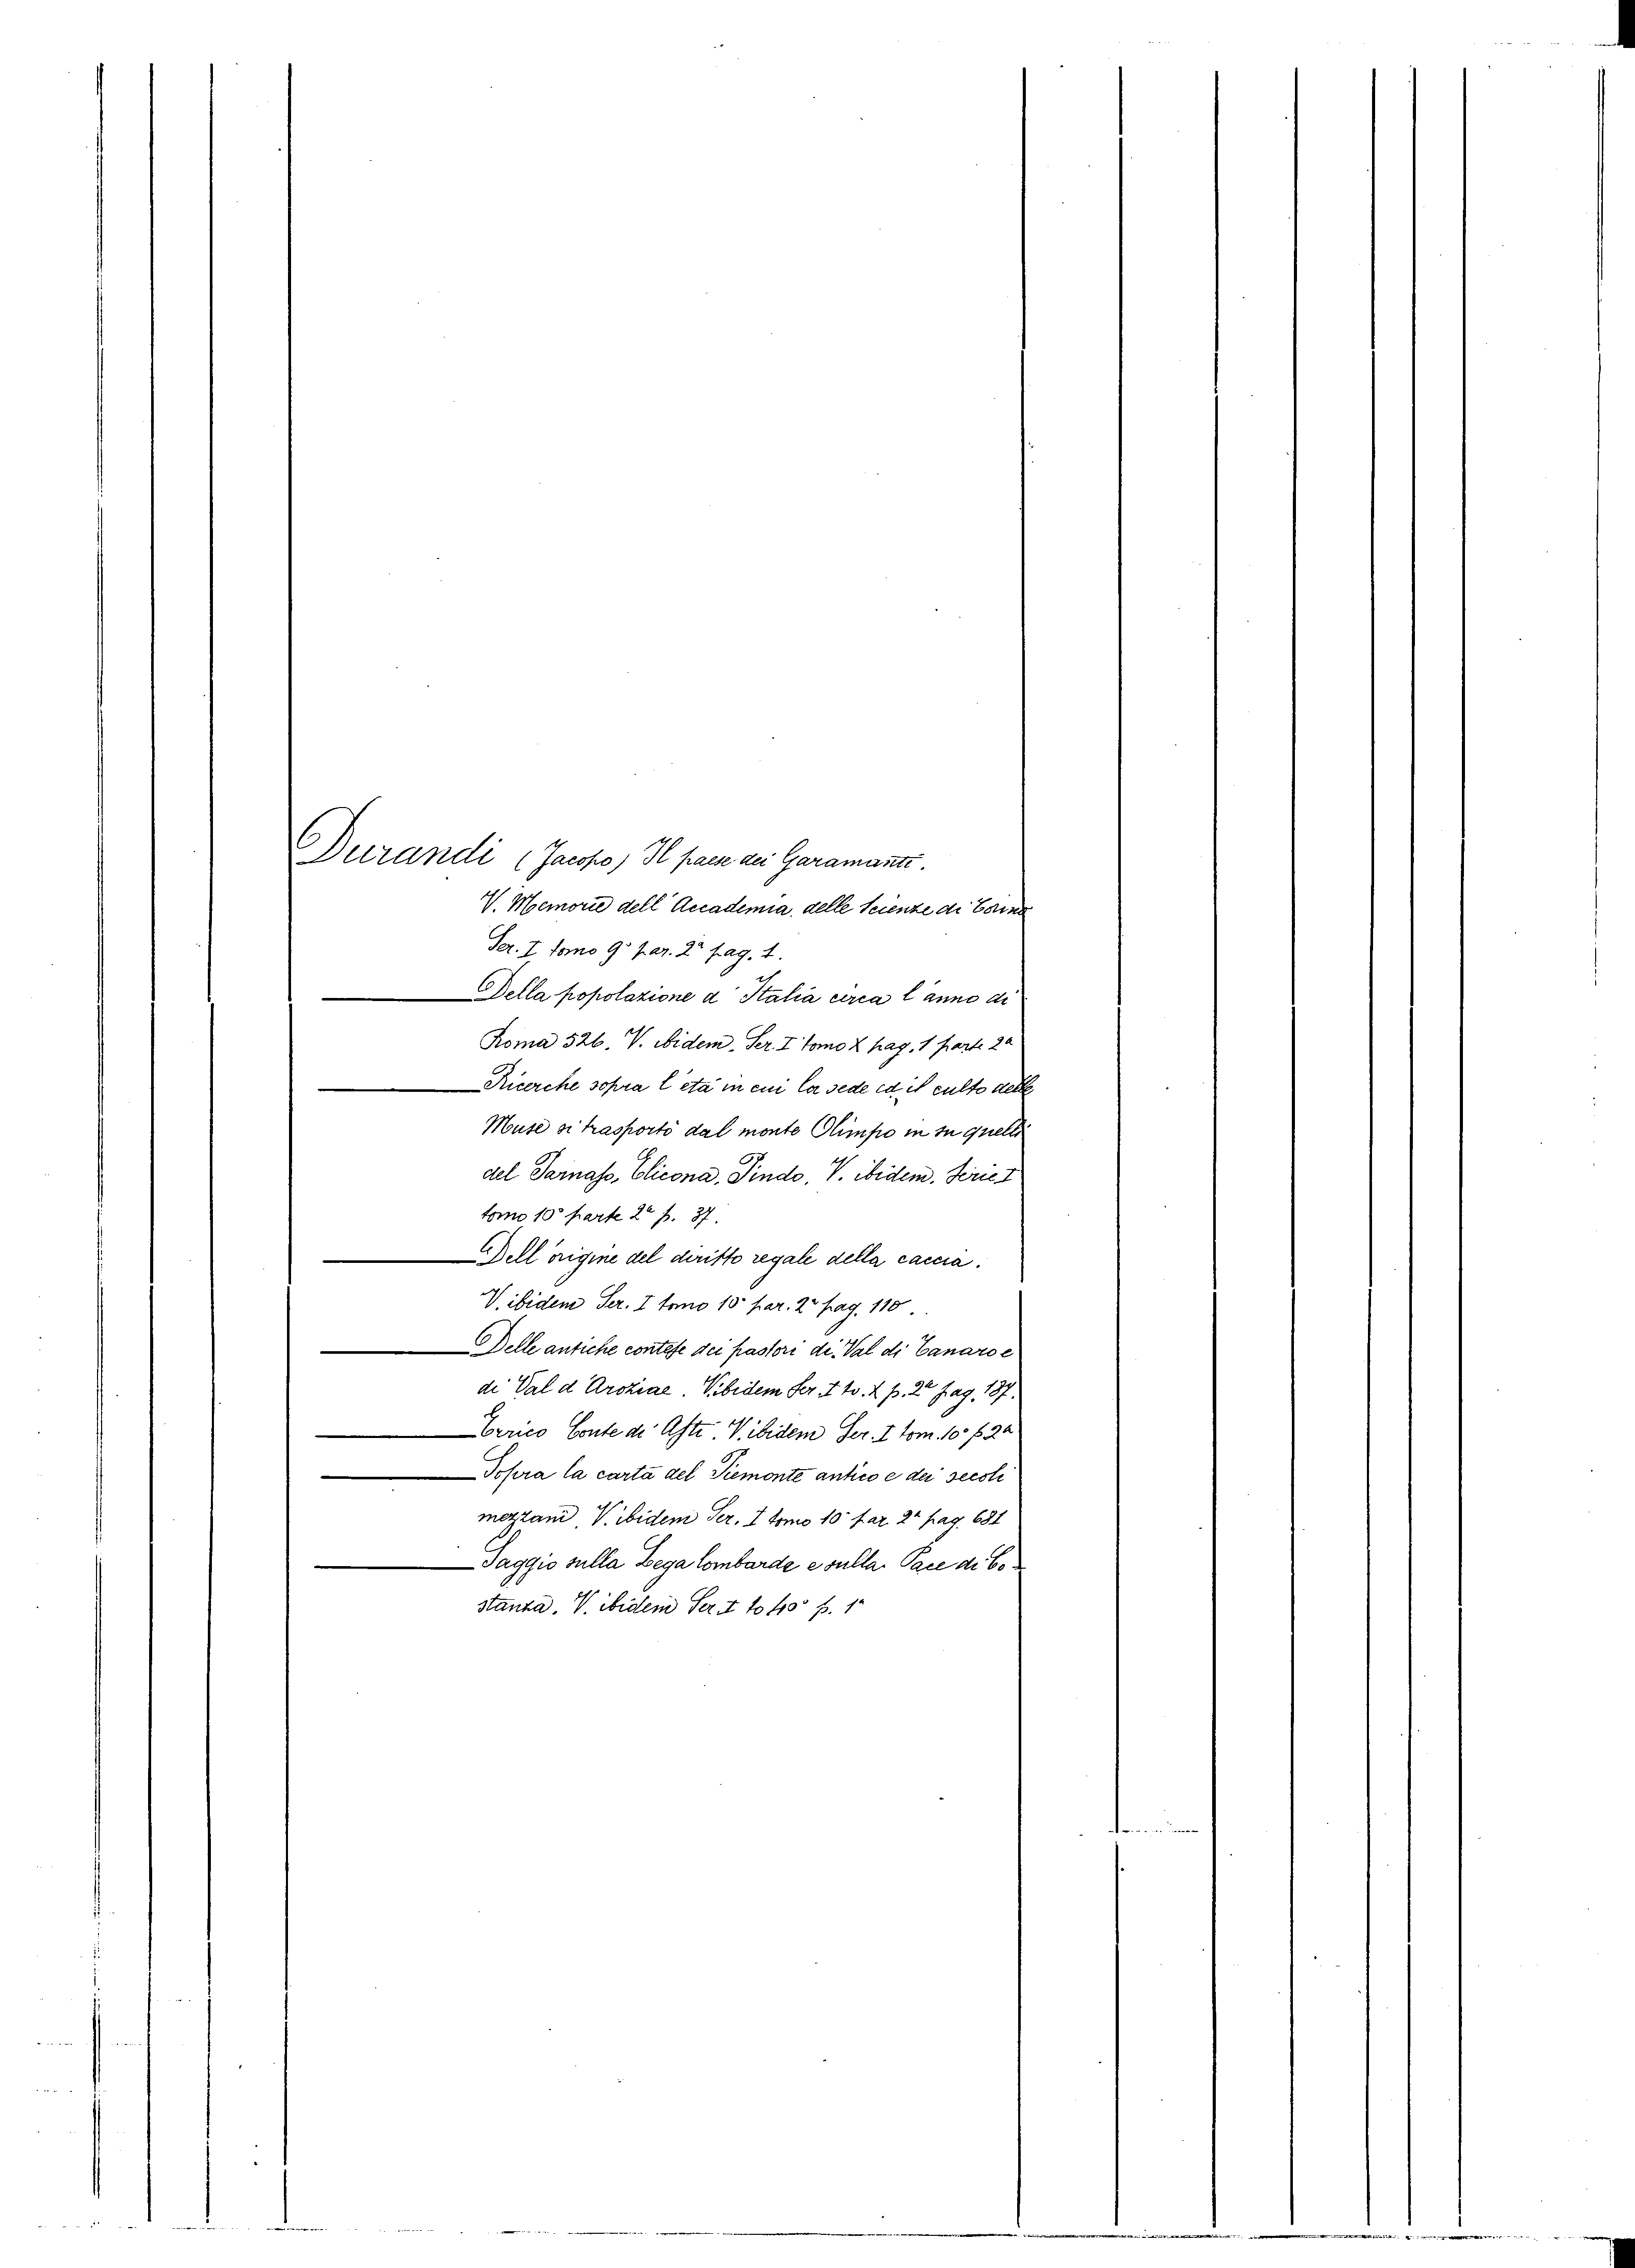 Durandi (Jacopo) Il paese dei Garamanti.
V. Memorie dell' Accademia delle Scienze di Torino
Ser. I tomo 9° par. 2ª pag. 1.
Della popolazione d' Italia circa l' anno di
Roma 526. V. ibidem. Ser. I tomo X pag. 1 parte 2ª
Ricerche sopra l' età in cui la sede ed il culto delle
Muse si trasportò dal monte Olimpo in su quelli
del Parnasso, Elicona, Pindo. V. ibidem. Serie I
tomo 10° parte 2ª p. 37.
Dell' origine del diritto regale della caccia.
V. ibidem Ser. I tomo 10° par. 2ª pag. 110.
Delle antiche contese dei pastori di Val di Tanaro e
di Val d' Arozia e. V. ibidem Ser. I to. X p. 2ª pag. 187.
Errico Conte di Asti. V. ibidem Ser. I tom. 10° p. 2ª
Sopra la carta del Piemonte antico e dei secoli
mezzani, V. ibidem Ser. I tomo 10° par. 2ª pag. 681
Saggio sulla Lega lombarda e sulla Pace di Co-
stanza. V. ibidem Ser. I to 40° p. 1ª